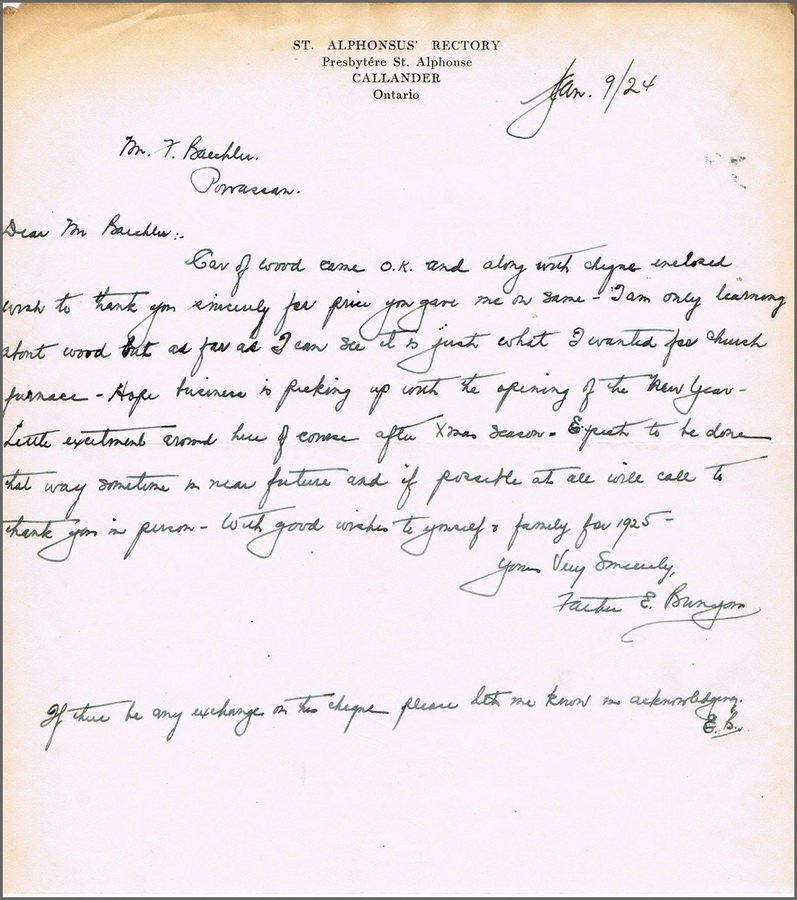 ST. ALPHONSUS' RECTORY
Presbytére St. Alphonse
CALLANDER
Ontario
Jan. 9/24
Mr. F. Baechler.
Powassan.
Dear Mr Baechler:-
Car of wood came O.K. and along with cheque enclosed
wish to thank you sincerely for price you gave me on same - I am only learning
about wood but as far as I can see it is just what I wanted for church
furnace - Hope business is picking up with the opening of the New Year -
Little excitment around here of course after Xmas season - Expect to be down
that way sometime in near future and if possible at all will call to
thank you in person - With good wishes to yourself & family for 1925 -
Yours Very Sincerely,
Father E.
If there be any exchange on this cheque please let me know in acknowledging.
E.B.